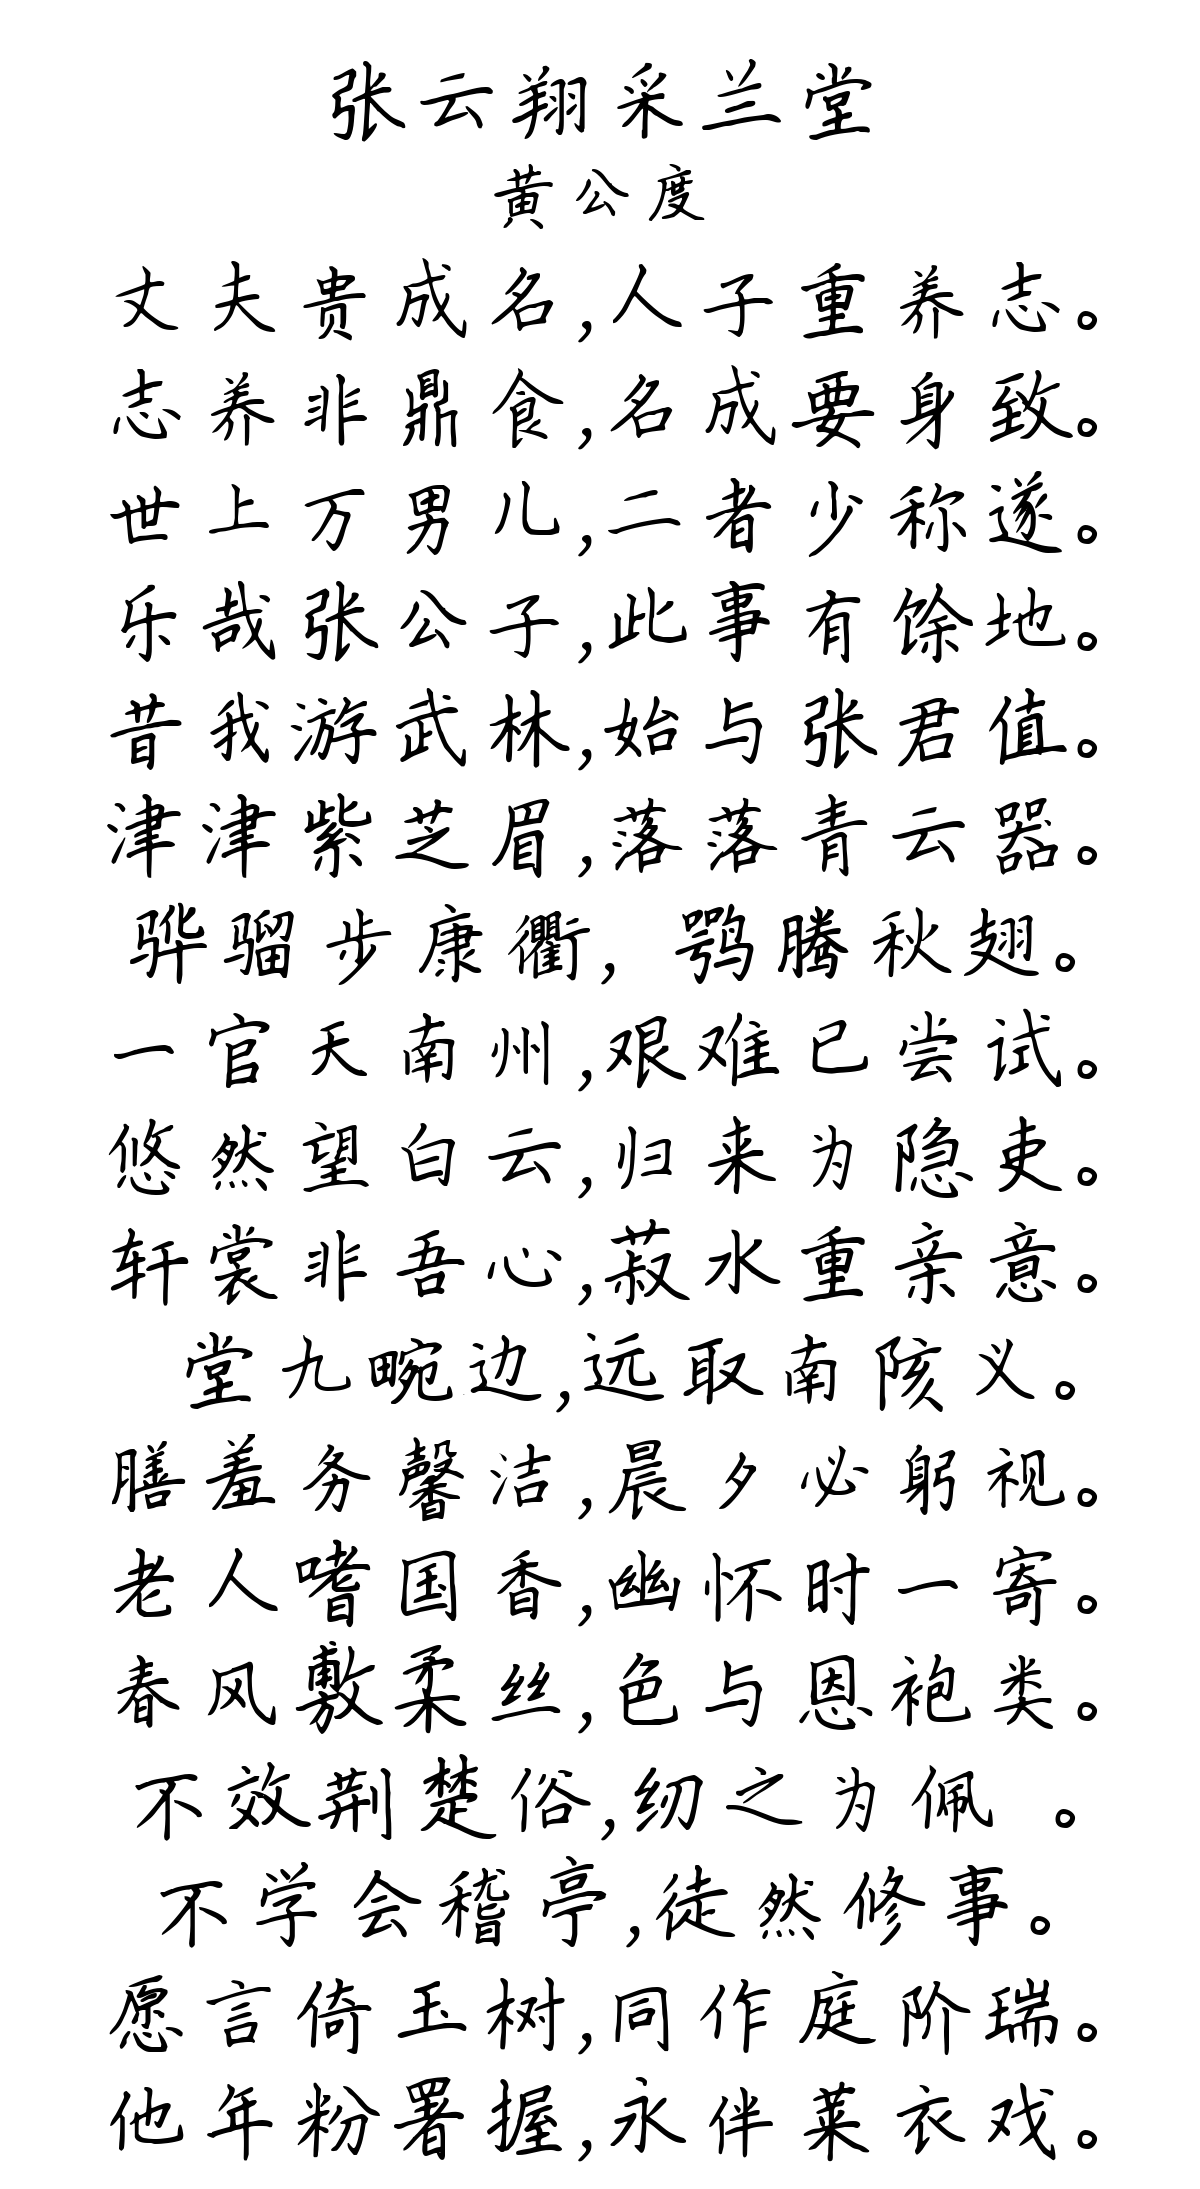 张云翔采兰堂
黄公度
丈夫贵成名,人子重养志。
志养非鼎食,名成要身致。
世上万男儿,二者少称遂。
乐哉张公子,此事有馀地。
昔我游武林,始与张君值。
津津紫芝眉,落落青云器。
骅骝步康衢,鹗腾秋翅。
一官天南州,艰难已尝试。
悠然望白云,归来为隐吏。
轩裳非吾心,菽水重亲意。
堂九畹边,远取南陔义。
膳羞务馨洁,晨夕必躬视。
老人嗜国香,幽怀时一寄。
春风敷柔丝,色与恩袍类。
不效荆楚俗,纫之为佩 。
不学会稽亭,徒然修事。
愿言倚玉树,同作庭阶瑞。
他年粉署握,永伴莱衣戏。